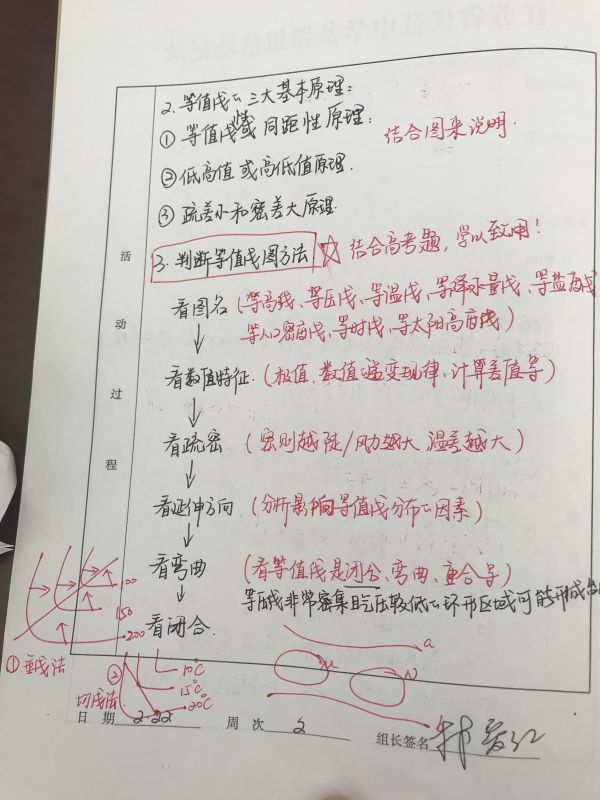 江苏省仪征中学备课组活动记录
2. 等值线の三大基本原理:
① 等值线 或同距性原理: 结合图来说明.
② 低高值或高低值原理.
③ 疏差小和密差大原理.
3. 判断等值线图方法 ☆ 结合高考题,学以致用!
看图名 (等高线、等压线、等温线、等降水量线、等盐度线
等人口密度线、等时线、等太阳高度线)
↓
看数值特征. (极值、数值递变规律、计算差值等)
↓
看疏密 (密则越陡/风力越大、温差越大)
↓
看延伸方向 (分析影响等值线分布の因素)
↓
看弯曲 (看等值线是闭合、弯曲、重合等)
↓ 等压线非常密集且气压较低の环形区域可能形成台
看闭合.
活动过程
100
150
200
① 垂线法
②
切线法
10℃
15℃
20℃
a
M
N
日 期 2.22 周 次 2 组长签名